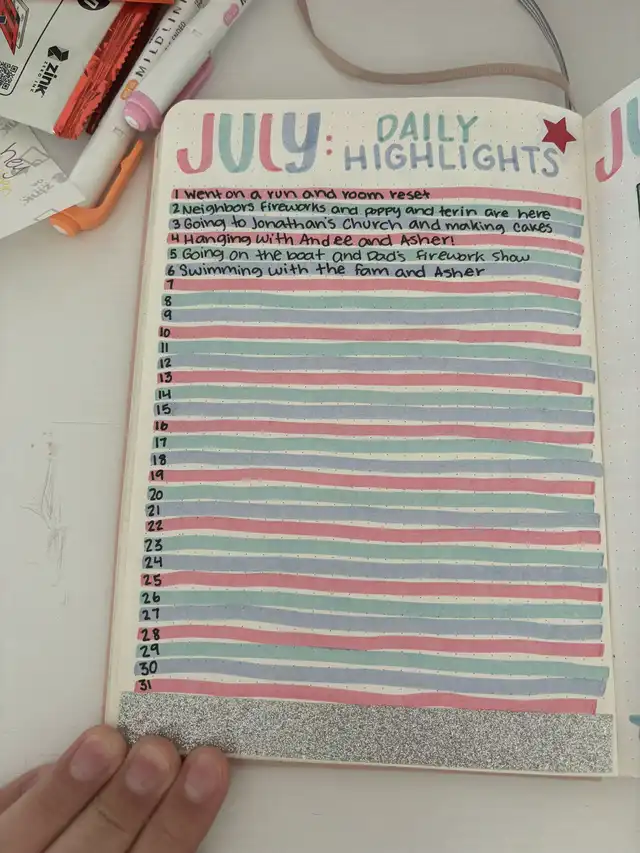 MILDLINER
zink
hey
zink
JULY: DAILY HIGHLIGHTS
JU
1 Went on a run and room reset
2 Neighbors fireworks and poppy and terin are here
3 Going to Jonathan's Church and making cakes
4 Hanging with Andee and Asher!
5 Going on the boat and Dad's firework show
6 Swimming with the fam and Asher
7
8
9
10
11
12
13
14
15
16
17
18
19
20
21
22
23
24
25
26
27
28
29
30
31